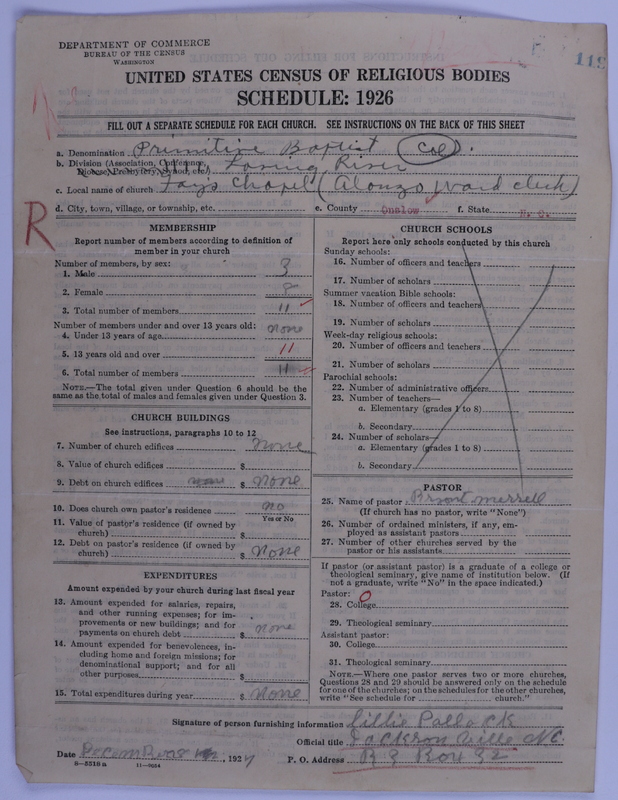 DEPARTMENT OF COMMERCE
BUREAU OF THE CENSUS
WASHINGTON
118
UNITED STATES CENSUS OF RELIGIOUS BODIES
SCHEDULE: 1926
FILL OUT A SEPARATE SCHEDULE FOR EACH CHURCH. SEE INSTRUCTIONS ON THE BACK OF THIS SHEET
a. Denomination Primitive Baptist (Col).
b. Division (Association, Conference, Diocese, Presbytery, Synod, etc.) River
c. Local name of church Fays Chapel (Alonzo Ward clerk)
d. City, town, village, or township, etc. e. County Onslow f. State N. C.
R
MEMBERSHIP
Report number of members according to definition of member in your church
Number of members, by sex:
1. Male 3
2. Female 8
3. Total number of members 11
Number of members under and over 13 years old:
4. Under 13 years of age none
5. 13 years old and over 11
6. Total number of members 11
NOTE.—The total given under Question 6 should be the same as the total of males and females given under Question 3.
CHURCH BUILDINGS
See instructions, paragraphs 10 to 12
7. Number of church edifices None
8. Value of church edifices $
9. Debt on church edifices none $ None
10. Does church own pastor's residence no
Yes or No
11. Value of pastor's residence (if owned by church) $
12. Debt on pastor's residence (if owned by church) $ None
EXPENDITURES
Amount expended by your church during last fiscal year
13. Amount expended for salaries, repairs, and other running expenses; for improvements or new buildings; and for payments on church debt $ none
14. Amount expended for benevolences, including home and foreign missions; for denominational support; and for all other purposes $
15. Total expenditures during year $ None
CHURCH SCHOOLS
Report here only schools conducted by this church
Sunday schools:
16. Number of officers and teachers
17. Number of scholars
Summer vacation Bible schools:
18. Number of officers and teachers
19. Number of scholars
Week-day religious schools:
20. Number of officers and teachers
21. Number of scholars
Parochial schools:
22. Number of administrative officers
23. Number of teachers—
a. Elementary (grades 1 to 8)
b. Secondary
24. Number of scholars—
a. Elementary (grades 1 to 8)
b. Secondary
PASTOR
25. Name of pastor Bryant Merrell
(If church has no pastor, write "None")
26. Number of ordained ministers, if any, employed as assistant pastors
27. Number of other churches served by the pastor or his assistants
If pastor (or assistant pastor) is a graduate of a college or theological seminary, give name of institution below. (If not a graduate, write "No" in the space indicated.)
Pastor: 0
28. College
29. Theological seminary
Assistant pastor:
30. College
31. Theological seminary
NOTE.—Where one pastor serves two or more churches, Questions 28 and 29 should be answered only on the schedule for one of the churches; on the schedules for the other churches, write "See schedule for church."
Signature of person furnishing information Lillie Pallock
Official title Jacksonville NC.
Date , 1927 P. O. Address R 3 Box 52
8—5518 a 11—9664